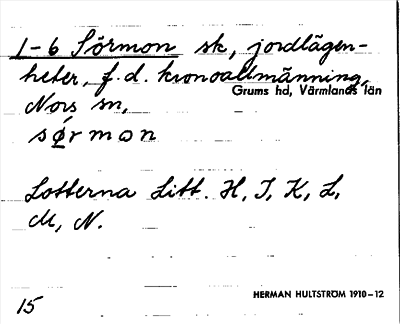 1-6 Sörmon sk, jordlägen-
heter, f.d. kronoallmänning,
Grums hd, Värmlands län
Nors sn,
sørmon
Lotterna Litt. H, I, K, L,
M, N.
HERMAN HULTSTRÖM 1910-12
15